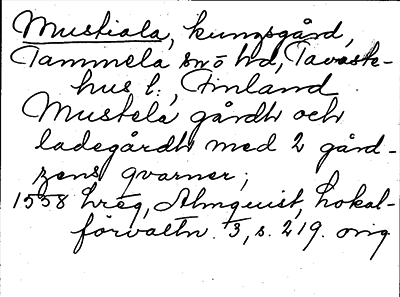 Mustiala, kungsgård,
Tammela sn ö hd, Tavaste-
hus l., Finland
Mustela gårdh och
ladegårdh med 2 gård-
zens qvarner;
1558 hreg, Almquist, Lokal-
förvaltn. 3, s. 219. orig